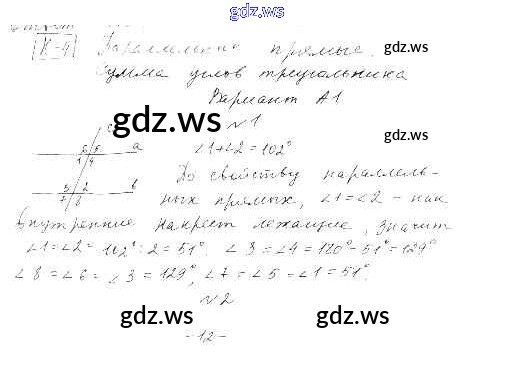 gdz.ws
К-4 Параллельные прямые.
gdz.ws
Сумма углов треугольника
Вариант А1
gdz.ws
№1
gdz.ws
c
6 5 a
1 4
3 2 b
7 8
∠1+∠2=102°
По свойству параллель-
ных прямых, ∠1=∠2 - как
внутренние накрест лежащие, значит
∠1=∠2= 102°:2=51°. ∠3=∠4=180°-51°=129°
∠8=∠6=∠3=129°, ∠7=∠5=∠1=51°.
№2
gdz.ws
gdz.ws
-12-